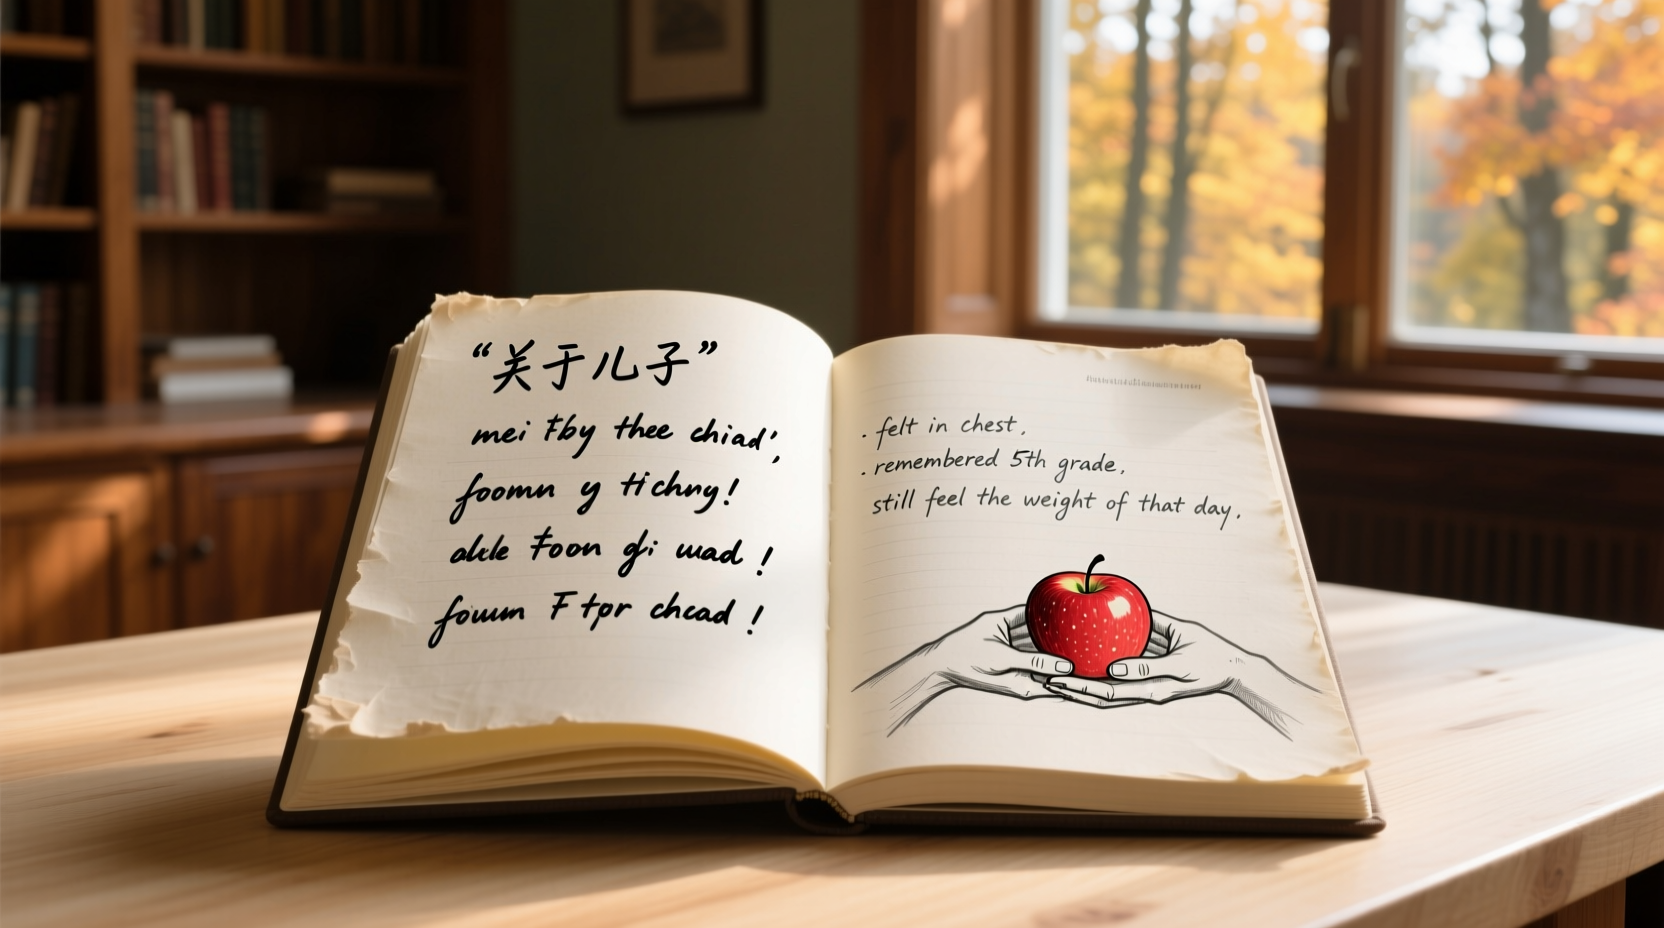 “关于儿子”
mei Fby thee chiad',
foomn y tichny!
akle Foon gi wad !
fouum F tpr chcad !
. felt in chest.
. remembered 5th grade.
still feel the weight of that day.